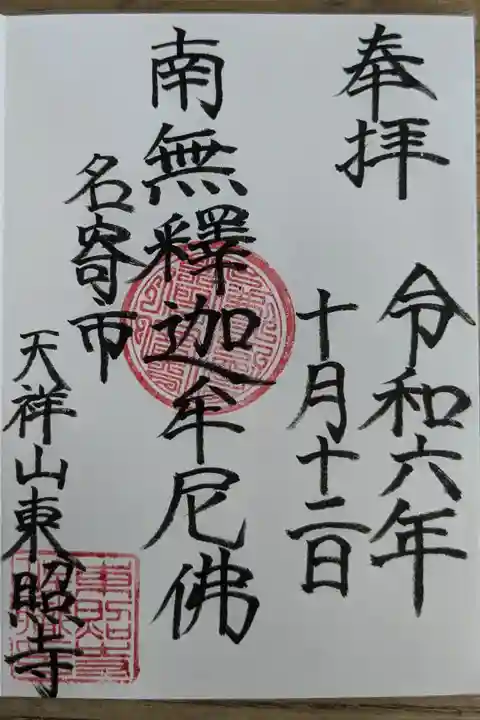 奉拝
令和六年
十月十二日
南無釋迦牟尼佛
名寄市
天祥山東照寺